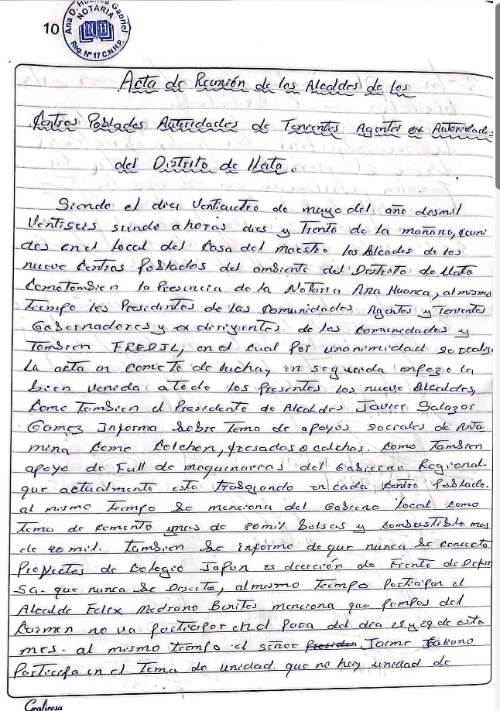 10
Ana D. Huanca Gabriel
NOTARIA
NH
Reg. N° 17 C.N.H.P.
Acta de Reunión de los Alcaldes de los
Centros Poblados Autoridades de Tenientes Agentes ex Autoridades
del Distrito de Llata.
Siendo el dia Venticuatro de mayo del año dosmil
Ventiseis siendo ahoras dies y Trenta de la mañana, reuni
dos en el local del Casa del maestro los Alcades de los
nueve Centros Poblados del ambiente del Distrito de Llata
Cometambien la Presencia de la Notaria Ana Huanca, almismo
tiempo los Presidentes de las Comunidades Agentes y Tenientes
Gobernadores y ex dirigentes de las Comunidades y
Tambien FREDIL, en el cual por unanimidad se
la acta en comite de lucha, en seguenda enpezo la
bien venida atodo los presentes los nueve Alcaldes,
Come Tambien el Presidente de Alcaldes Javier Salazar
Gomez Informa Sobre Tema de apoyos sociales de Anta
mina Come Colchon, fresadas o colchas. Como Tambien
apoyo de Full de maquinarias del Gobierno Regional.
que actualmente esta Trabajando encada centro Poblado.
al mismo tiempo se menciona del Gobierno local como
tema de cemento mas de 80 mil Bolsas y combustible mas
de 40 mil. tambien Se informo de que nunca Se converto
Proyectos de Colegio Japon es dirección de Frente de Defen
sa. que nunca Se almismo tiempo Participan el
Alcalde Felix Medrano Benites menciona que Pampas del
Carmen no va participar en el Paro del dia 28 y 29 de este
mes. al mismo tiempo el señor Jaime
Participa en el Tema de unidad que no hay unidad de
Grafinesa